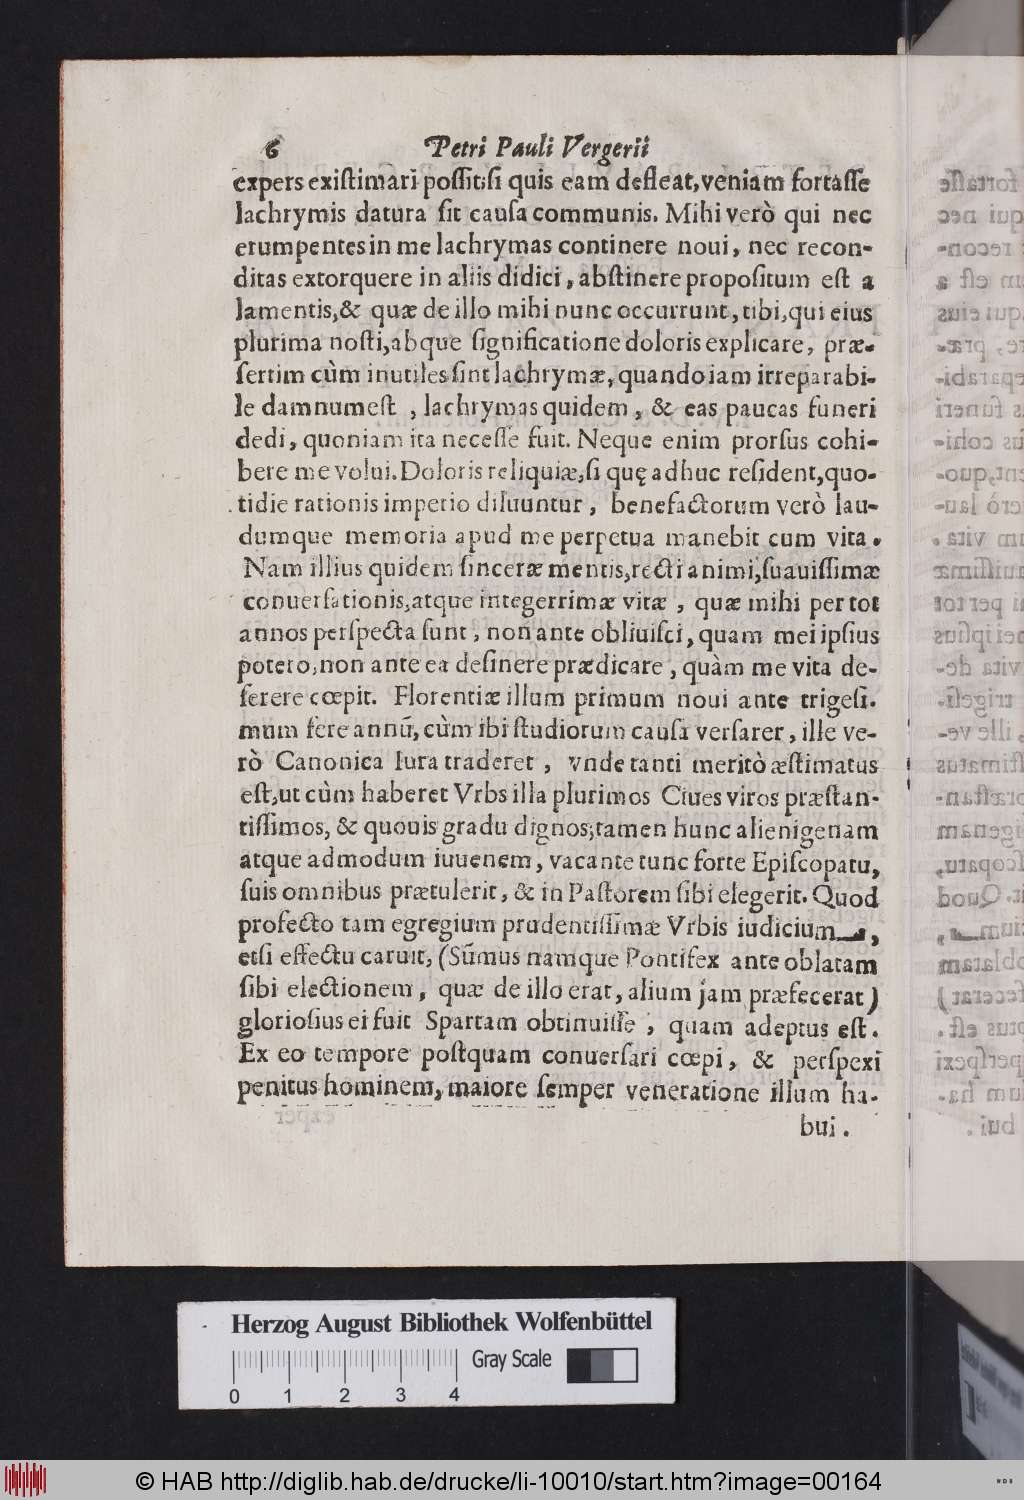 6 Petri Pauli Vergerii
expers existimari possit; si quis eam defleat, veniam fortasse
lachrymis datura sit causa communis. Mihi verò qui nec
erumpentes in me lachrymas continere noui, nec recon-
ditas extorquere in aliis didici, abstinere propositum est a
lamentis, & quæ de illo mihi nunc occurrunt, tibi, qui eius
plurima nosti, abque significatione doloris explicare, præ-
sertim cùm inutiles sint lachrymæ, quando iam irreparabi-
le damnum est, lachrymas quidem, & eas paucas funeri
dedi, quoniam ita necesse fuit. Neque enim prorsus cohi-
bere me volui. Doloris reliquiæ, si quę adhuc resident, quo-
tidie rationis imperio diluuntur, benefactorum verò lau-
dumque memoria apud me perpetua manebit cum vita.
Nam illius quidem sinceræ mentis, recti animi, suauissimæ
conuersationis, atque integerrimæ vitæ, quæ mihi per tot
annos perspecta sunt, non ante obliuisci, quam mei ipsius
potero; non ante ea desinere prædicare, quàm me vita de-
serere cœpit. Florentiæ illum primum noui ante trigesi-
mum fere annũ, cùm ibi studiorum causa versarer, ille ve-
rò Canonica Iura traderet, vnde tanti meritò æstimatus
est, ut cùm haberet Vrbs illa plurimos Ciues viros præstan-
tissimos, & quouis gradu dignos; tamen hunc alienigenam
atque admodum iuuenem, vacante tunc forte Episcopatu,
suis omnibus prætulerit, & in Pastorem sibi elegerit. Quod
profecto tam egregium prudentissimæ Vrbis iudicium,
etsi effectu caruit, (Sũmus namque Pontifex ante oblatam
sibi electionem, quæ de illo erat, alium jam præfecerat)
gloriosius ei fuit Spartam obtinuisse, quam adeptus est.
Ex eo tempore postquam conuersari cœpi, & perspexi
penitus hominem, maiore semper veneratione illum ha-
bui.
Herzog August Bibliothek Wolfenbüttel
Gray Scale
0 1 2 3 4
© HAB http://diglib.hab.de/drucke/li-10010/start.htm?image=00164